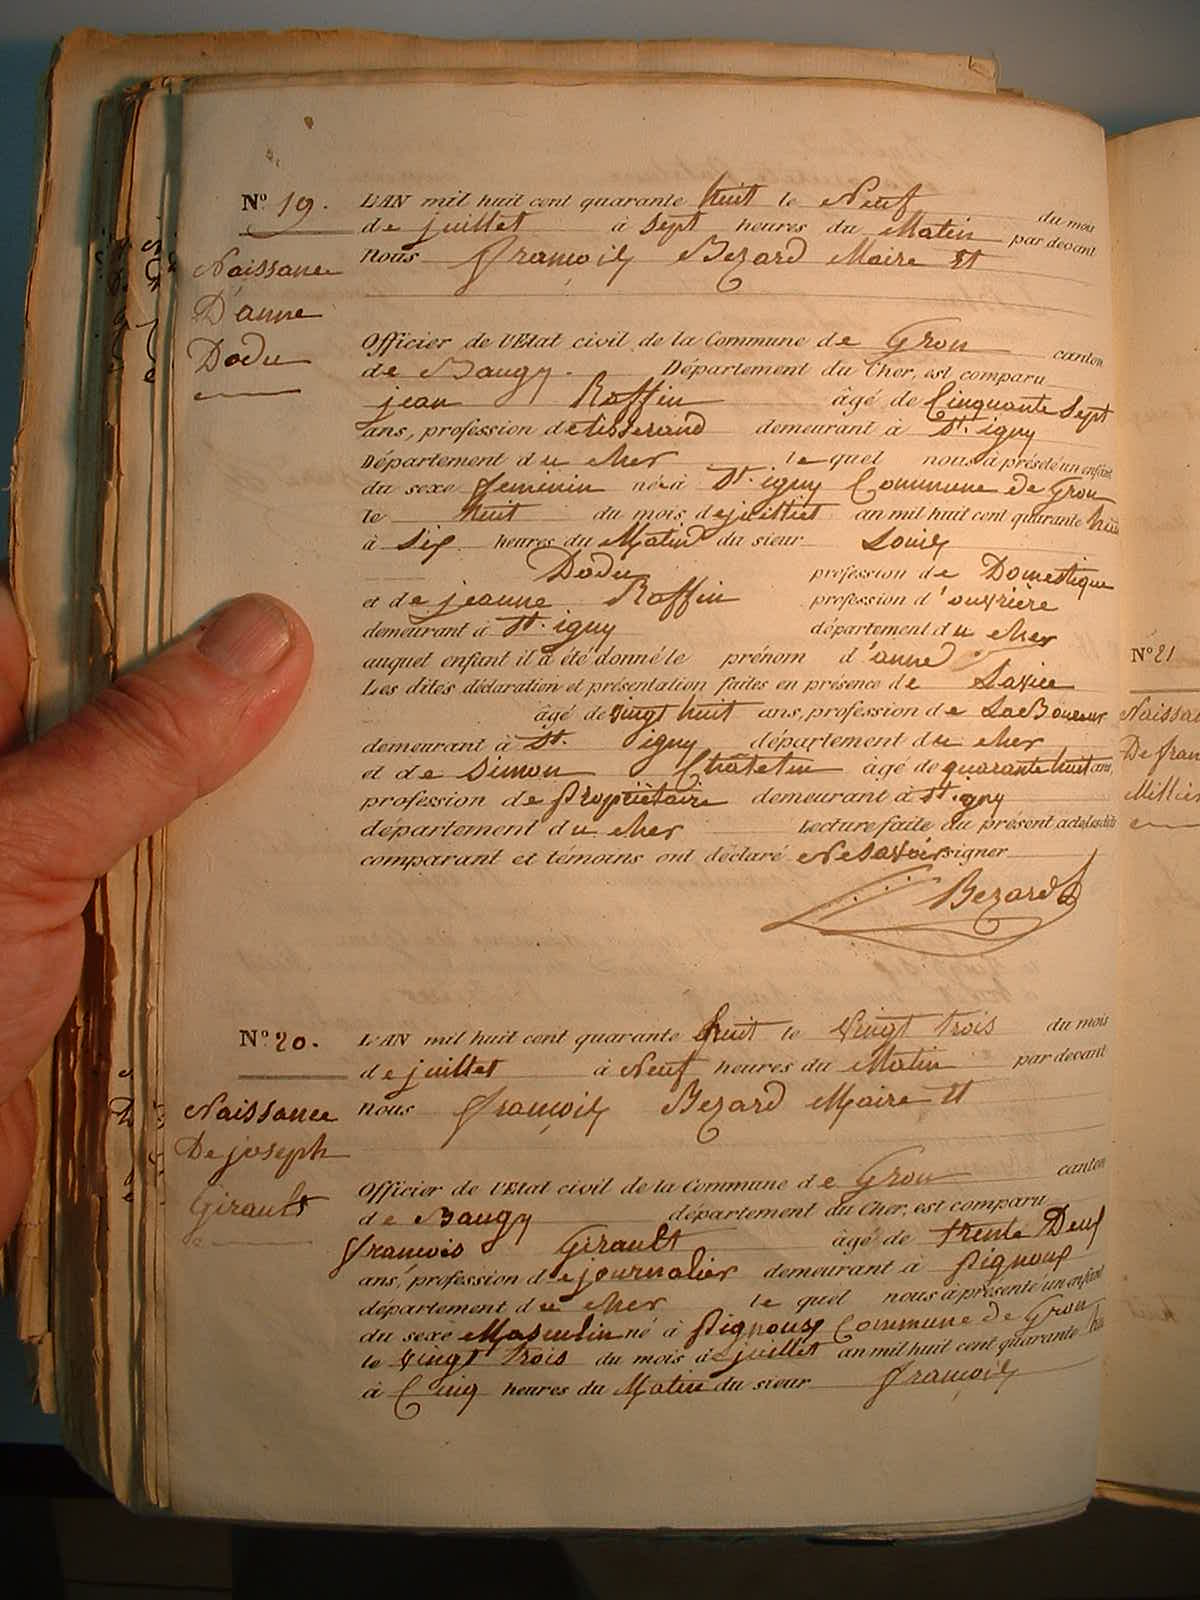 N° 19.
Naissance
D'anne
Dodu
L'AN mil huit cent quarante huit le Neuf du mois
de juillet à sept heures du Matin par devant
Nous françois Bezard Maire et
Officier de l'Etat civil de la Commune de Gron canton
de Baugy. Département du Cher, est comparu
jean Roffin âgé de Cinquante Sept
ans, profession de tisserand demeurant à St. igny
Département du cher le quel nous à préseté un enfant
du sexe feminin né à St. igny Commune de Gron
le huit du mois de juilliet an mil huit cent quarante huit
à Six heures du Matin du sieur Louis
Dodu profession de Domestique
et de jeanne Roffin profession d'ouvrière
demeurant à St. igny département du cher
auquel enfant il à été donné le prénom d'anne
Les dites déclaration et présentation faites en présence de
âgé de vingt huit ans, profession de LaBoureur
demeurant à St. igny département du cher
et de Simon âgé de quarante huit ans,
profession de Propriétaire demeurant à St. igny
département du cher Lecture faite du présent acte, lesdits
comparant et témoins ont déclaré Ne Savoir signer
Bezard
N° 20.
Naissance
De joseph
Girault
L'AN mil huit cent quarante huit le Vingt trois du mois
de juillet à Neuf heures du Matin par devant
nous françois Bezard Maire et
Officier de l'Etat civil de la Commune de Gron canton
de Baugy département du Cher, est comparu
françois Girault âgé de trente Deux
ans, profession de journalier demeurant à Pignoux
département du cher le quel nous à présenté un enfant
du sexe Masculin né à Pignoux Commune de Gron
le vingt trois du mois de juillet an mil huit cent quarante
à Cinq heures du Matin du sieur françois
N° 21